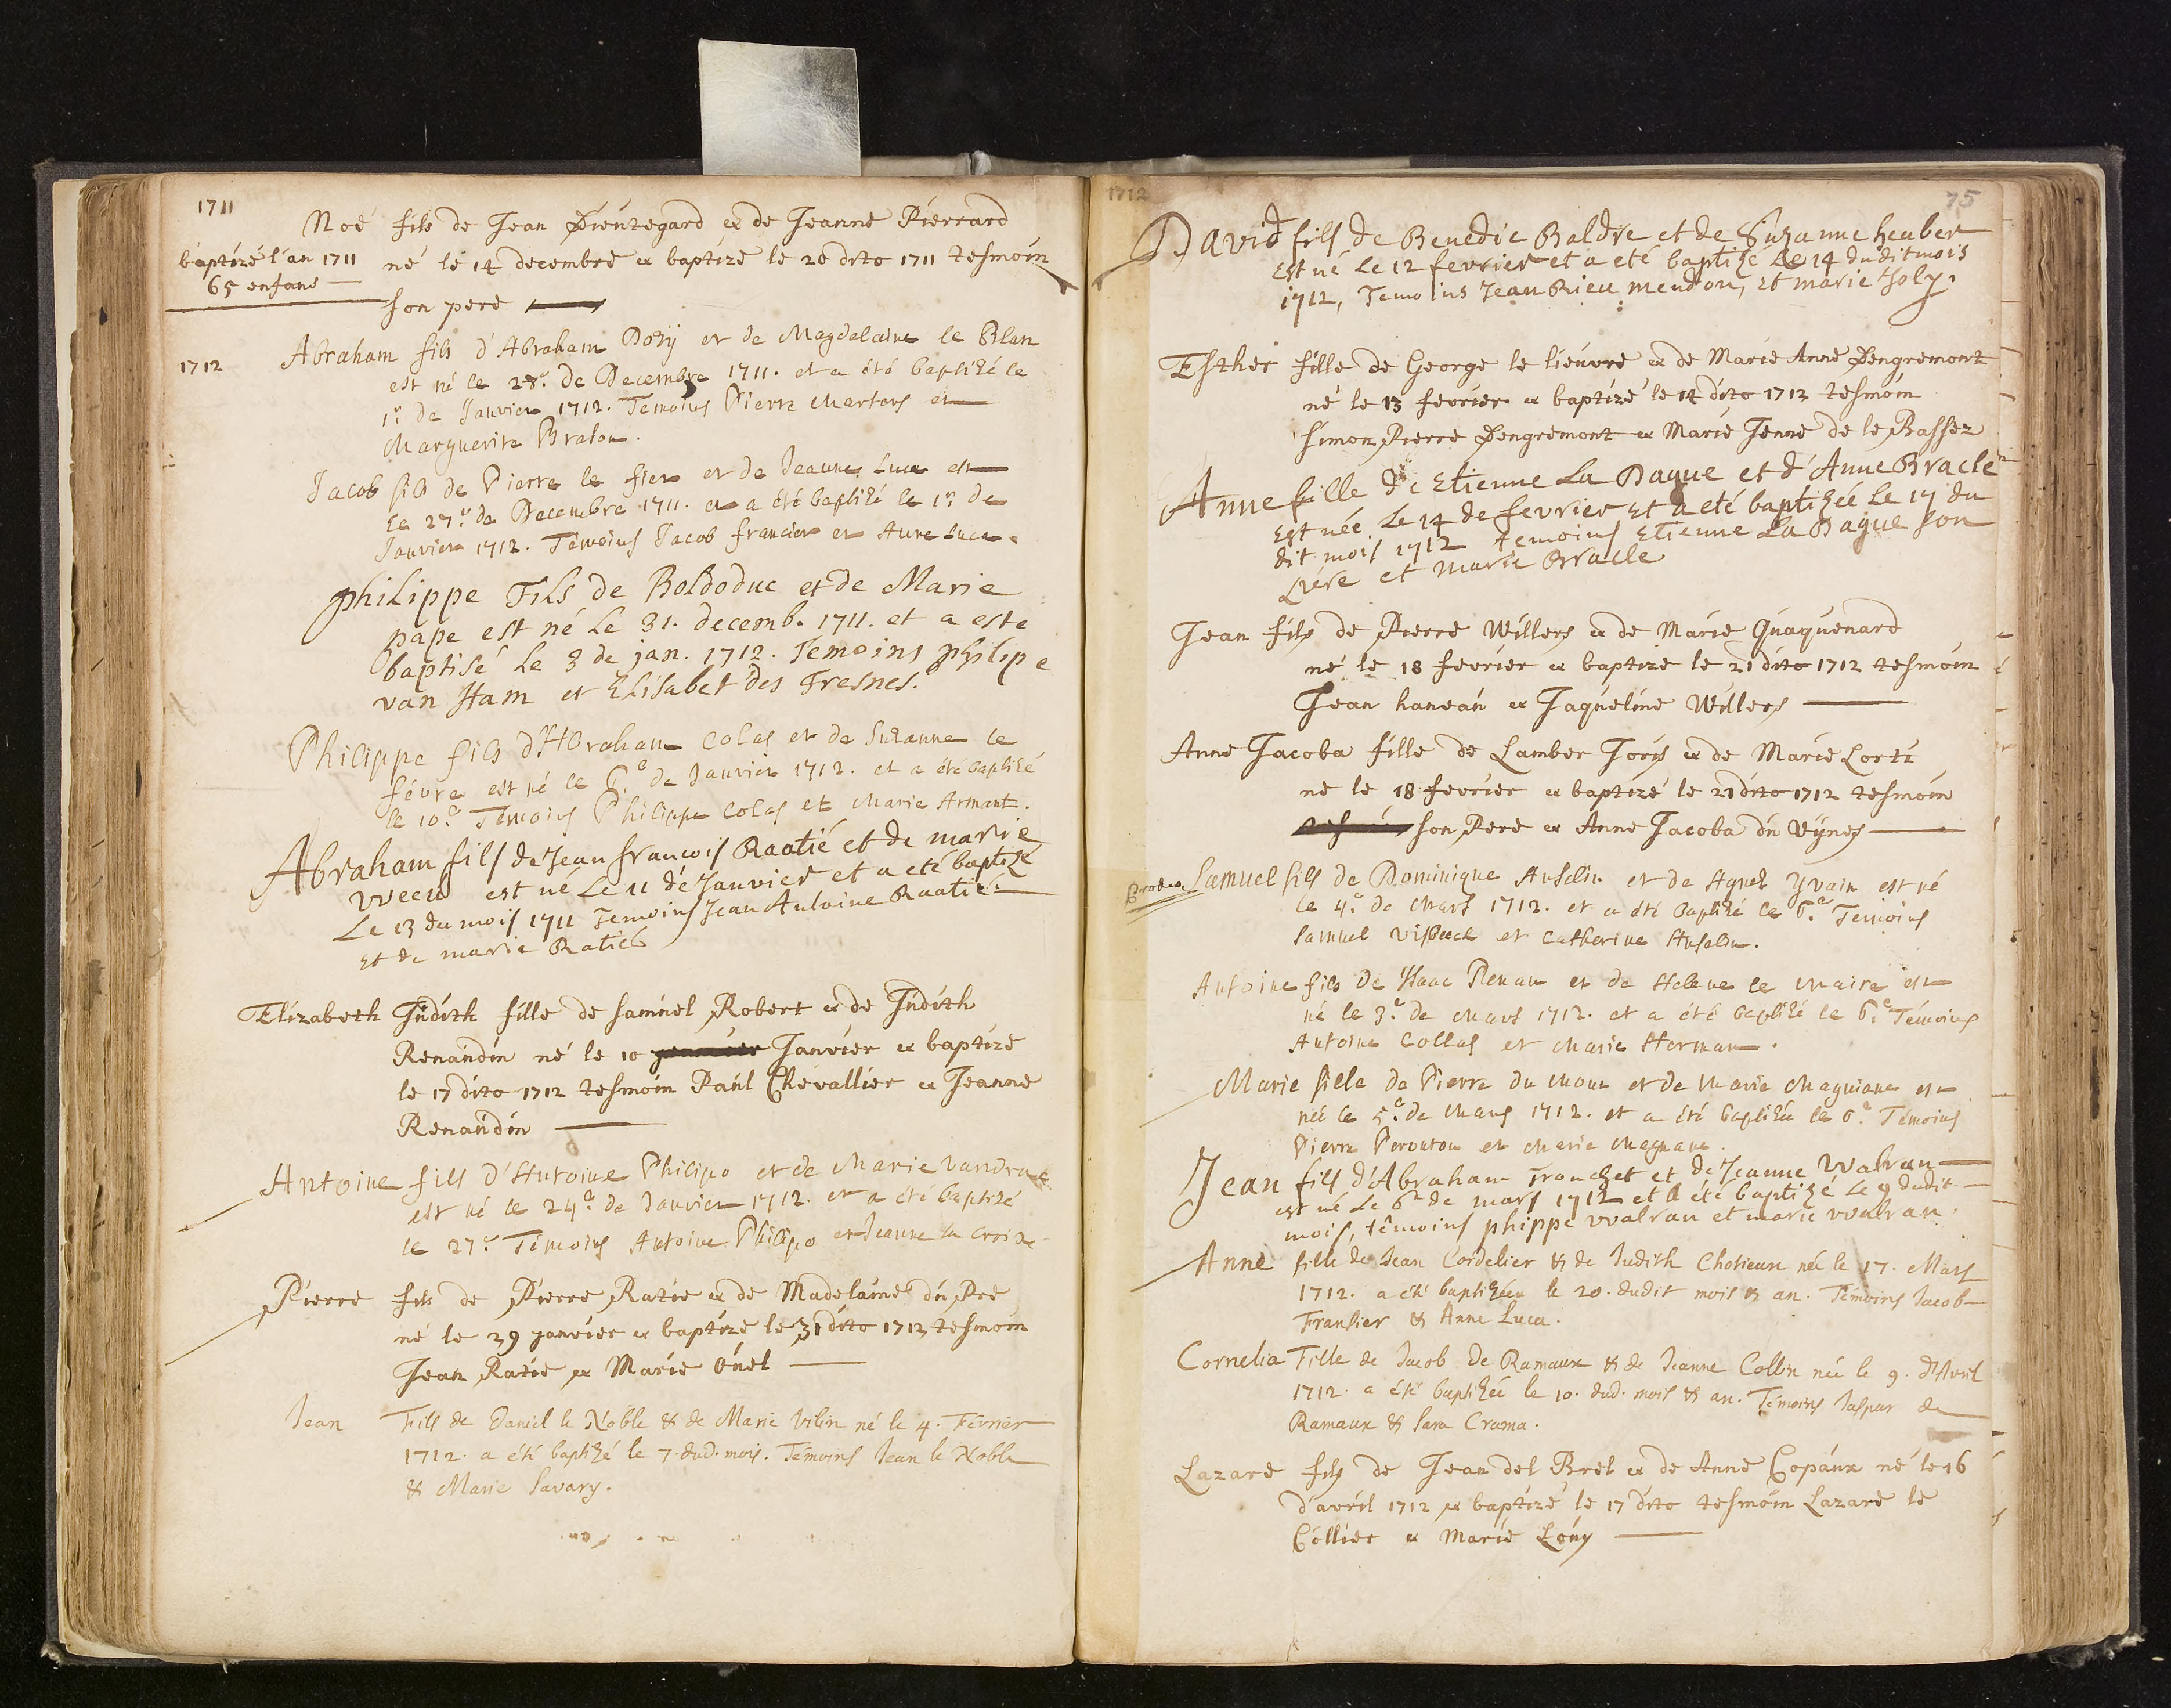 1711
Noé fils de Jean Dieutegard & de Jeanne Pierrard
baptizé l'an 1711
65 enfans
né le 14 decembre & baptizé le 20 dito 1711 tesmoin
son pere
1712
Abraham fils d'Abraham Dozÿ et de Magdelaine le Blan
est né le 28.e de Decembre 1711. et a été baptizé le
1.r de Janvier 1712. Temoins Pierre Martens et
Marguerite Braton.
Jacob fils de Pierre le fier et de Jeanne Luca est
le 27.e de Decembre 1711. et a été baptizé le 1.r de
Janvier 1712. Témoins Jacob francier et Anne Luca.
philippe Fils de Boldoduc et de Marie
pape est né le 31. decemb. 1711. et a este
baptisé le 3 de jan. 1712. Temoins philipe
van Ham et Elisabet des Fresnes.
Philippe fils d'Abraham Colas et de Suzanne le
févre est né le 6.e de Janvier 1712. et a été baptizé
le 10.e Témoins Philippe Colas et Marie Armant.
Abraham fils de Jean francois Raatié et de marie
est né Le 11 de Janvier et a eté baptizé
Le 13 du mois 1711 Temoins Jean Antoine Raatié
Et de marie Ratié
Elizabeth Judith fille de samuel Robert & de Judith
Renaudin né le 10 Janvier & baptizé
le 17 dito 1712 tesmoin Paul Chevallier & Jeanne
Renaudin
Antoine fils d'Antoine Philipo et de Marie Vandra
est né le 24.e de Janvier 1712. et a été baptizé
le 27.e Témoins Antoine Philipo et Jeanne la croix
Pierre fils de Pierre Ratie & de Madelaine du Pré
né le 29 janvier & baptizé le 31 dito 1712 tesmoin
Jean Ratie & Marie
Jean Fils de Daniel le Noble & de Marie Vilin né le 4. Février
1712. a été baptizé le 7. dud. mois. Témoins Jean le Noble
& Marie Savary.
1712
75
David fils de Benedic Baldre et de Suzanne heuber
Est né Le 12 fevrier et a eté baptizé Le 14 du dit mois
1712, Temoins Jean Rieu mendon, et marie
Esther fille de George le lieuvre & de Marie Anne Dengremont
né le 13 fevrier & baptizé le 14 dito 1712 tesmoin
Simon Pierre Dengremont & Marie Jenne de le Basser
Anne fille de Etienne La Dague et d'Anne Bracle
Est née Le 14 de fevrier Et a eté baptizée Le 17 du
dit mois 1712 temoins Etienne La Dague son
Pére et marie Bracle
Jean fils de Pierre Willers & de Marie Quaquenard
né le 18 fevrier & baptizé le 21 dito 1712 tesmoin
Jean & Jaqueline Willers
Anne Jacoba fille de Lamber Jorÿs & de Marie
né le 18 fevrier & baptizé le 21 dito 1712 tesmoin
son Pere & Anne Jacoba
Samuel fils de Dominique Anselin et de Agnes Yvain est né
le 4.e de Mars 1712. et a été baptizé le 6.e Temoins
Samuel et Catherine Anselin.
Antoine fils de Isaac Renau et de Helene le Maire est
né le 3.e de Mars 1712. et a été baptizé le 6.e Témoins
Antoine Collas et Marie Herman.
Marie fille de Pierre du Mour et de Marie Magniane est
née le 5.e de Mars 1712. et a été baptizée le 6.e Témoins
Pierre et Marie Magnane.
Jean fils d'Abraham Tronchet et de Jeanne Walran
est né Le 6e de mars 1712 et a été baptizé Le 9 dudit
mois, témoins phippe walran et marie walran.
Anne fille de Jean Cordelier & de Judith née le 17. Mars
1712. a été baptizée le 20. dudit mois & an. Témoins Jacob
Fransier & Anne Luca.
Cornelia Fille de Jacob De Ramaux & de Jeanne Collin née le 9. d'Avril
1712. a été baptizée le 10. dud. mois & an. Témoins Jaspar de
Ramaux & Sara Crama.
Lazare fils de Jean del Brel & de Anne Copaux né le 16
d'avril 1712 & baptizé le 17 dito tesmoin Lazare le
Cellier & Marie